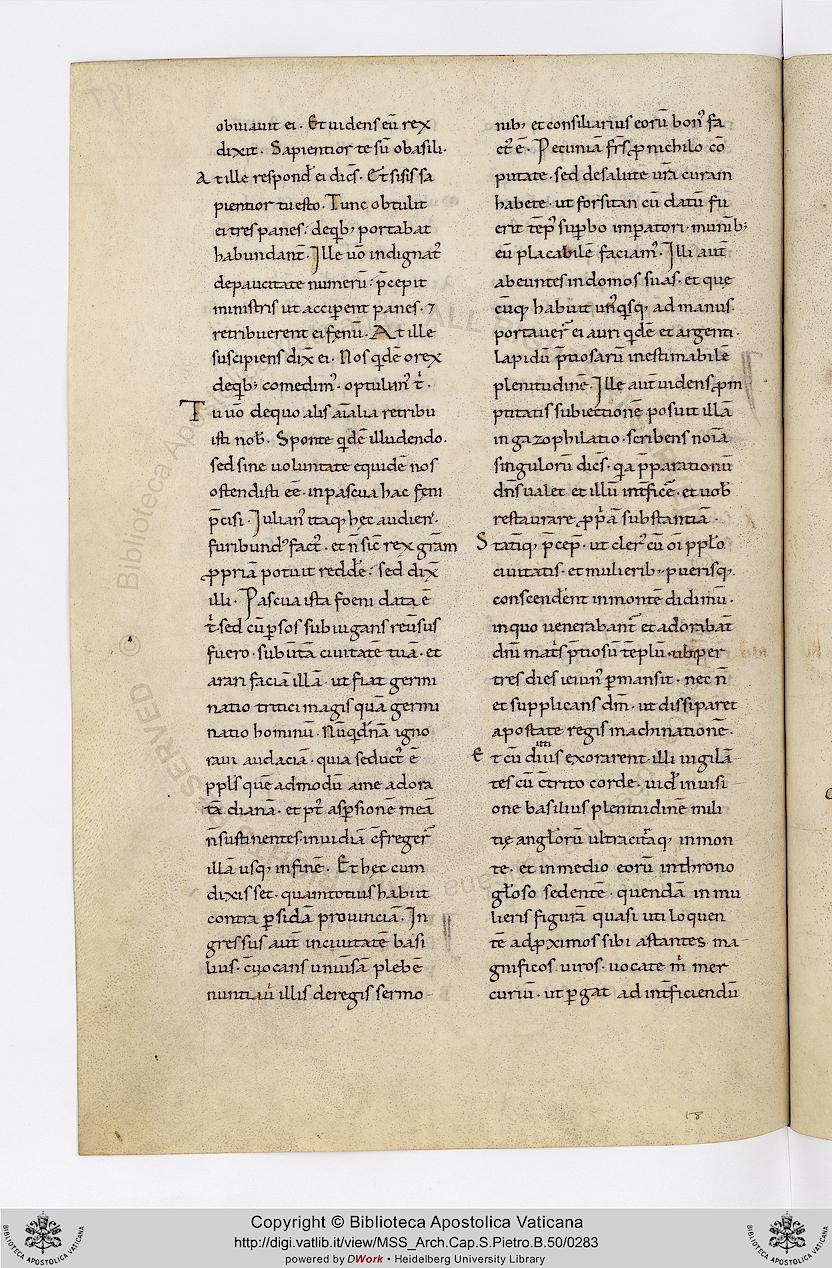 obuiauit ei. Et uidens eū rex
dixit. Sapientior te sū o basili.
At ille respond̄ ei dic̄s. Et si sis sa
pientior tu esto. Tunc obtulit
ei tres panes: de qb; portabat
habundant̄. Ille uō indignat᷒
de paucitate numerū: p̄cepit
ministris ut acciperent panes. ⁊
retribuerent ei fenū. At ille
suscipiens dix̄ ei. Nos qdē o rex
de qb; comedim᷒. optulim᷒ t̄.
Tu uō de quo alis aīalia retribu
isti nob̄. Sponte qdē illudendo.
sed sine uoluntate equidē nos
ostendisti eē. in pascua hac feni
p̄cisi. Iulian᷒ itaq; hęc audien᷒.
furibund᷒ fact᷒. et n̄ sic̄ rex grām
ꝓpriā potuit redde: sed dix̄
illi. Pascua ista foeni data ē
t̄. sed cū ꝑsos subiugans reūsus
fuero. subūtā ciuitatē tuā. et
arari faciā illā. ut fiat germi
natio tritici magis quā germi
natio hominū. Nūqd n̄ā igno
raui audaciā. quia seduct᷒ ē
ppl̄s quē admodū a me adora
tā dianā. et pt᷒ asꝑsionē meā
n̄ sustinentes. inuidiā c̄freger̄
illā usq; in finē. Et hęc cum
dixisset. quantotius habiit
contra ꝑsidā prouinciā. In
gressus aut̄ in ciuitatē basi
lius. c̄uocans uniūsā plebē
nuntiaū illis de regis sermo
nib; et consiliarius eorū bon᷒ fa
ct᷒ ē. Pecuniā fr̄s ꝓ nichilo cō
putate. sed de salute ur̄a curam
habete. ut forsitan cū datū fu
erit tēp᷒ suꝑbo imꝑatori. munib;
eū placabilē faciam᷒. Illi aut̄
abeuntes in domos suas. et quę
cūq; habuit un᷒qsq; ad manus.
portauer̄ ei auri qdē et argenti.
lapidū p̄tiosarū inestimabilē
plenitudinē. Ille aut̄ uidens ꝓm
ptitatis subiectionē posuit illā
in gazophilatio. scribens noīa
singulorū dic̄s. q̄a p̄parationū
dn̄s ualet et illū int̄ficē. et uob̄
restaurare ꝓp̄ā substantiā.
Statīq; p̄cep᷒. ut cler᷒ cū oī ppl̄o
ciuitatis. et mulierib; puerisq;.
conscendēnt in montē didimū.
in quo uenerabant̄ et adorabāt
dn̄i mat̄s p̄tiosū tēplū. ubi per
tres dies ieiun᷒ ꝑmansit. nec n̄
et supplicans dm̄. ut dissiparet
apostate regis machinationē.
Et cū diuti᷒ exorarent. illi uigilā
tes cū c̄trito corde. uid̄ in uisi
one basilius plenitudinē mili
tie angl̄orū ultra citraq; in mon
te. et in medio eorū in throno
gl̄oso sedentē. quendā in mu
lieris figurā quasi uti loquen
tē ad ꝓximos sibi astantes. ma
gnificos uiros. uocate m̄ mer
curiū. ut ꝑgat ad int̄ficiendū
18
Copyright © Biblioteca Apostolica Vaticana
http://digi.vatlib.it/view/MSS_Arch.Cap.S.Pietro.B.50/0283
powered by DWork • Heidelberg University Library